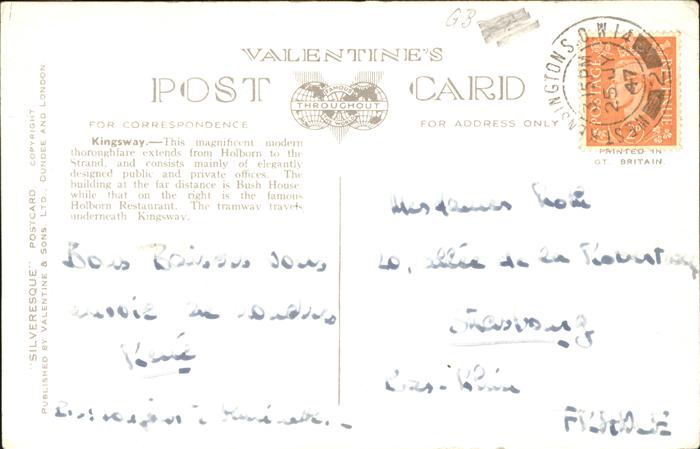 GB
VALENTINE'S
POST CARD
FAMOUS
THROUGHOUT
FOR CORRESPONDENCE
FOR ADDRESS ONLY
Kingsway.—This magnificent modern
thoroughfare extends from Holborn to the
Strand, and consists mainly of elegantly
designed public and private offices. The
building at the far distance is Bush House
while that on the right is the famous
Holborn Restaurant. The tramway travels
underneath Kingsway.
"SILVERESQUE" POSTCARD COPYRIGHT
PUBLISHED BY VALENTINE & SONS. LTD., DUNDEE AND LONDON
PRINTED IN
GT. BRITAIN.
25 JY
47
POSTAGE
Bons Baisers vous
envoie de Londres
René
allée de la
Strasbourg
Bas-Rhin
FRANCE